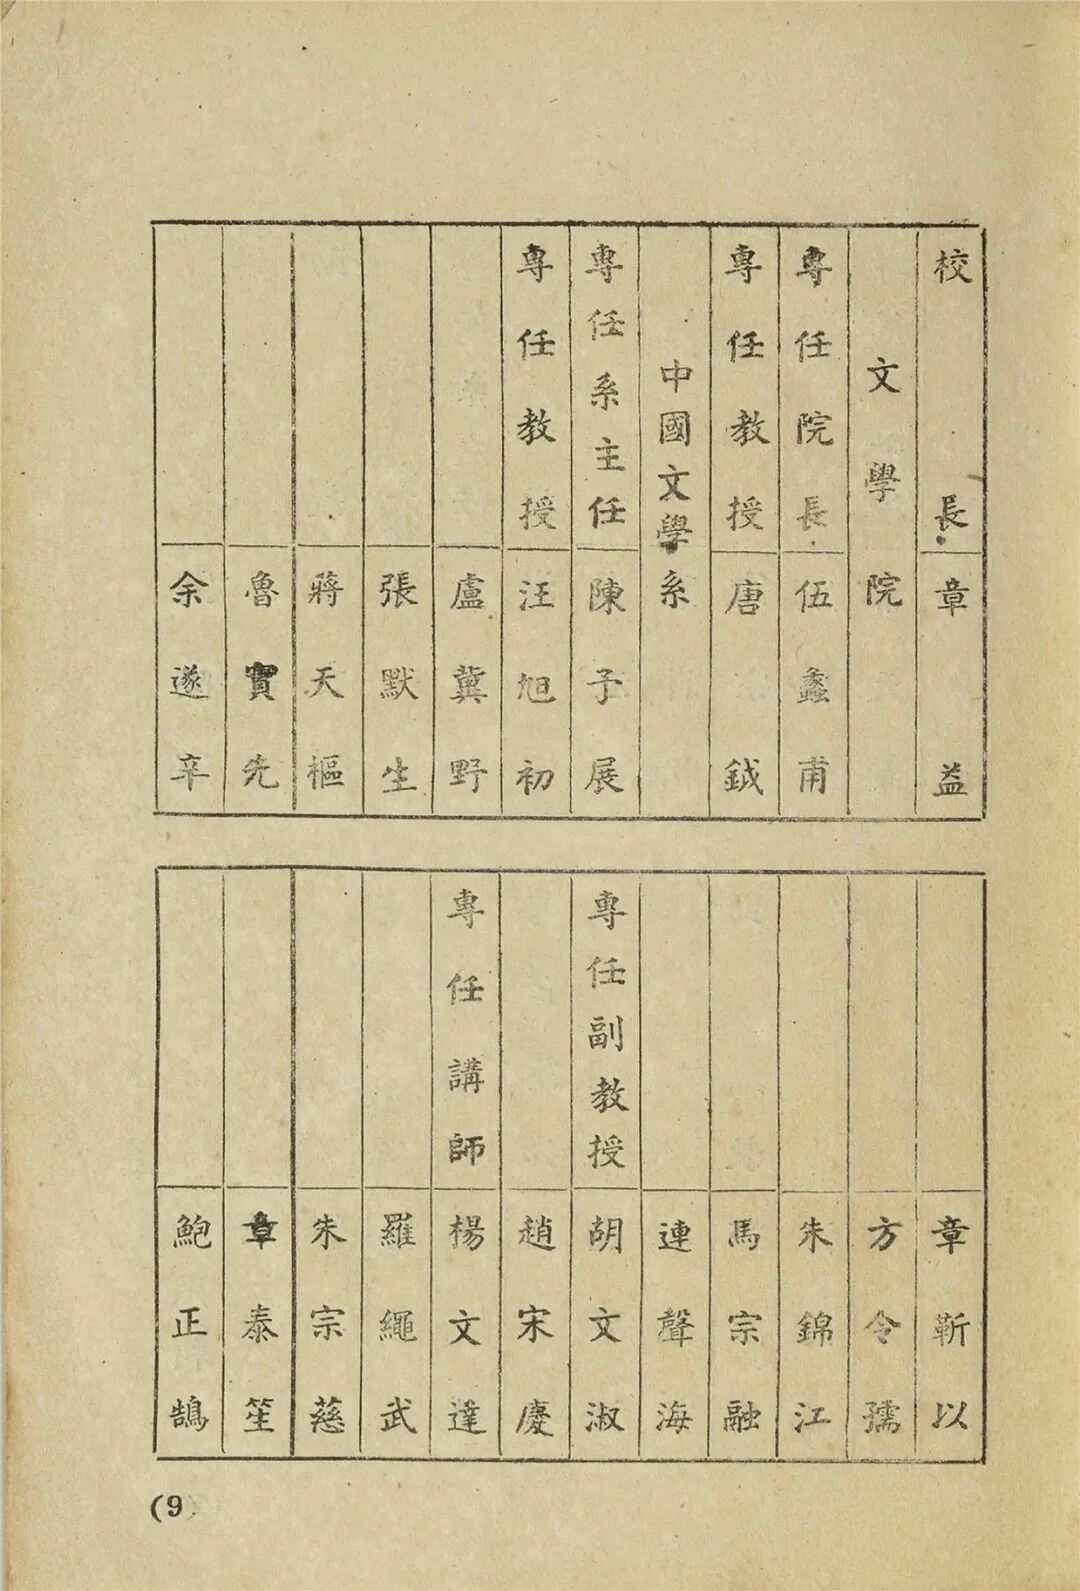 校長 章益
文學院
專任院長 伍蠡甫
專任教授 唐鉞
中國文學系
專任系主任 陳子展
專任教授 汪旭初
盧冀野
張默生
蔣天樞
魯實先
余遂辛
章靳以
方令孺
朱錦江
馬宗融
連聲海
專任副教授 胡文淑
趙宋慶
專任講師 楊文達
羅繩武
朱宗慈
章泰笙
鮑正鵠
(9)